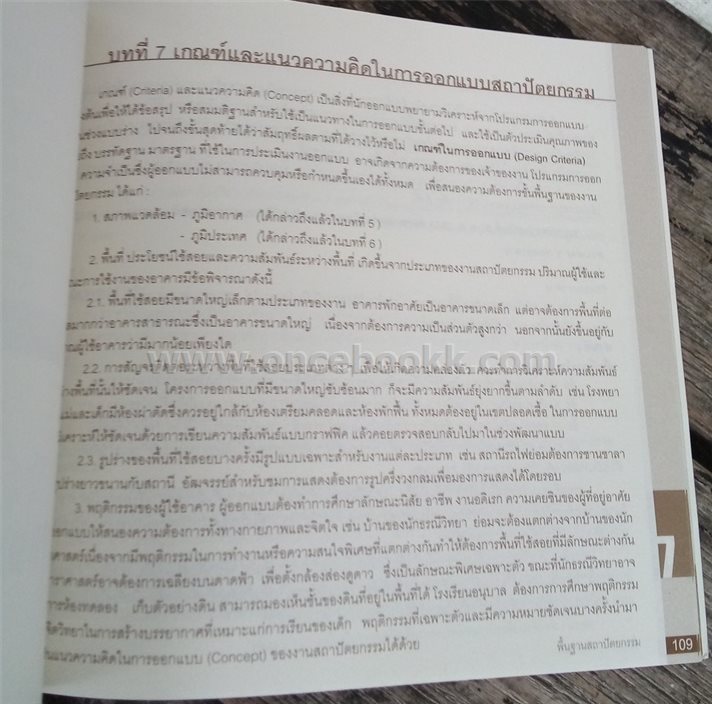 บทที่ 7 เกณฑ์และแนวความคิดในการออกแบบสถาปัตยกรรม
เกณฑ์ (Criteria) และแนวความคิด (Concept) เป็นสิ่งที่นักออกแบบพยายามวิเคราะห์จากโปรแกรมการออกแบบ
งต้นเพื่อให้ได้ข้อสรุป หรือสมมติฐานสำหรับใช้เป็นแนวทางในการออกแบบขั้นต่อไป และใช้เป็นตัวประเมินคุณภาพของ
นช่วงแบบร่าง ไปจนถึงขั้นสุดท้ายได้ว่าสัมฤทธิ์ผลตามที่ได้วางไว้หรือไม่ เกณฑ์ในการออกแบบ (Design Criteria)
ถึง บรรทัดฐาน มาตรฐาน ที่ใช้ในการประเมินงานออกแบบ อาจเกิดจากความต้องการของเจ้าของงาน โปรแกรมการออก
ความจำเป็นซึ่งผู้ออกแบบไม่สามารถควบคุมหรือกำหนดขึ้นเองได้ทั้งหมด เพื่อสนองความต้องการขั้นพื้นฐานของงาน
ปัตยกรรม ได้แก่ :
1. สภาพแวดล้อม - ภูมิอากาศ (ได้กล่าวถึงแล้วในบทที่ 5 )
- ภูมิประเทศ (ได้กล่าวถึงแล้วในบทที่ 6 )
2. พื้นที่ ประโยชน์ใช้สอยและความสัมพันธ์ระหว่างพื้นที่ เกิดขึ้นจากประเภทของงานสถาปัตยกรรม ปริมาณผู้ใช้และ
ณะการใช้งานของอาคารมีข้อพิจารณาดังนี้
2.1. พื้นที่ใช้สอยมีขนาดใหญ่เล็กตามประเภทของงาน อาคารพักอาศัยเป็นอาคารขนาดเล็ก แต่อาจต้องการพื้นที่ต่อ
มากกว่าอาคารสาธารณะซึ่งเป็นอาคารขนาดใหญ่ เนื่องจากต้องการความเป็นส่วนตัวสูงกว่า นอกจากนั้นยังขึ้นอยู่กับ
ณผู้ใช้อาคารว่ามีมากน้อยเพียงใด
www.oncebookk.com
2.2. การสัญจรติดต่อระหว่างพื้นที่ใช้สอยประเภทต่างๆ เพื่อให้เกิดความคล่องตัว ควรทำการวิเคราะห์ความสัมพันธ์
างพื้นที่นั้นให้ชัดเจน โครงการออกแบบที่มีขนาดใหญ่ซับซ้อนมาก ก็จะมีความสัมพันธ์ยุ่งยากขึ้นตามลำดับ เช่น โรงพยา
แม่และเด็กมีห้องผ่าตัดซึ่งควรอยู่ใกล้กับห้องเตรียมคลอดและห้องพักฟื้น ทั้งหมดต้องอยู่ในเขตปลอดเชื้อ ในการออกแบบ
วิเคราะห์ให้ชัดเจนด้วยการเขียนความสัมพันธ์แบบกราฟฟิค แล้วคอยตรวจสอบกลับไปมาในช่วงพัฒนาแบบ
2.3. รูปร่างของพื้นที่ใช้สอยบางครั้งมีรูปแบบเฉพาะสำหรับงานแต่ละประเภท เช่น สถานีรถไฟย่อมต้องการชานชาลา
ปร่างยาวขนานกับสถานี อัฒจรรย์สำหรับชมการแสดงต้องการรูปครึ่งวงกลมเพื่อมองการแสดงได้โดยรอบ
3. พฤติกรรมของผู้ใช้อาคาร ผู้ออกแบบต้องทำการศึกษาลักษณะนิสัย อาชีพ งานอดิเรก ความเคยชินของผู้ที่อยู่อาศัย
อกแบบให้สนองความต้องการทั้งทางกายภาพและจิตใจ เช่น บ้านของนักธรณีวิทยา ย่อมจะต้องแตกต่างจากบ้านของนัก
ศาสตร์เนื่องจากมีพฤติกรรมในการทำงานหรือความสนใจพิเศษที่แตกต่างกันทำให้ต้องการพื้นที่ใช้สอยที่มีลักษณะต่างกัน
าราศาสตร์อาจต้องการเฉลียงบนดาดฟ้า เพื่อตั้งกล้องส่องดูดาว ซึ่งเป็นลักษณะพิเศษเฉพาะตัว ขณะที่นักธรณีวิทยาอาจ
การห้องทดลอง เก็บตัวอย่างดิน สามารถมองเห็นชั้นของดินที่อยู่ในพื้นที่ได้ โรงเรียนอนุบาล ต้องการการศึกษาพฤติกรรม
จิตวิทยาในการสร้างบรรยากาศที่เหมาะแก่การเรียนของเด็ก พฤติกรรมที่เฉพาะตัวและมีความหมายชัดเจนบางครั้งนำมา
นแนวความคิดในการออกแบบ (Concept) ของงานสถาปัตยกรรมได้ด้วย
7
พื้นฐานสถาปัตยกรรม 109